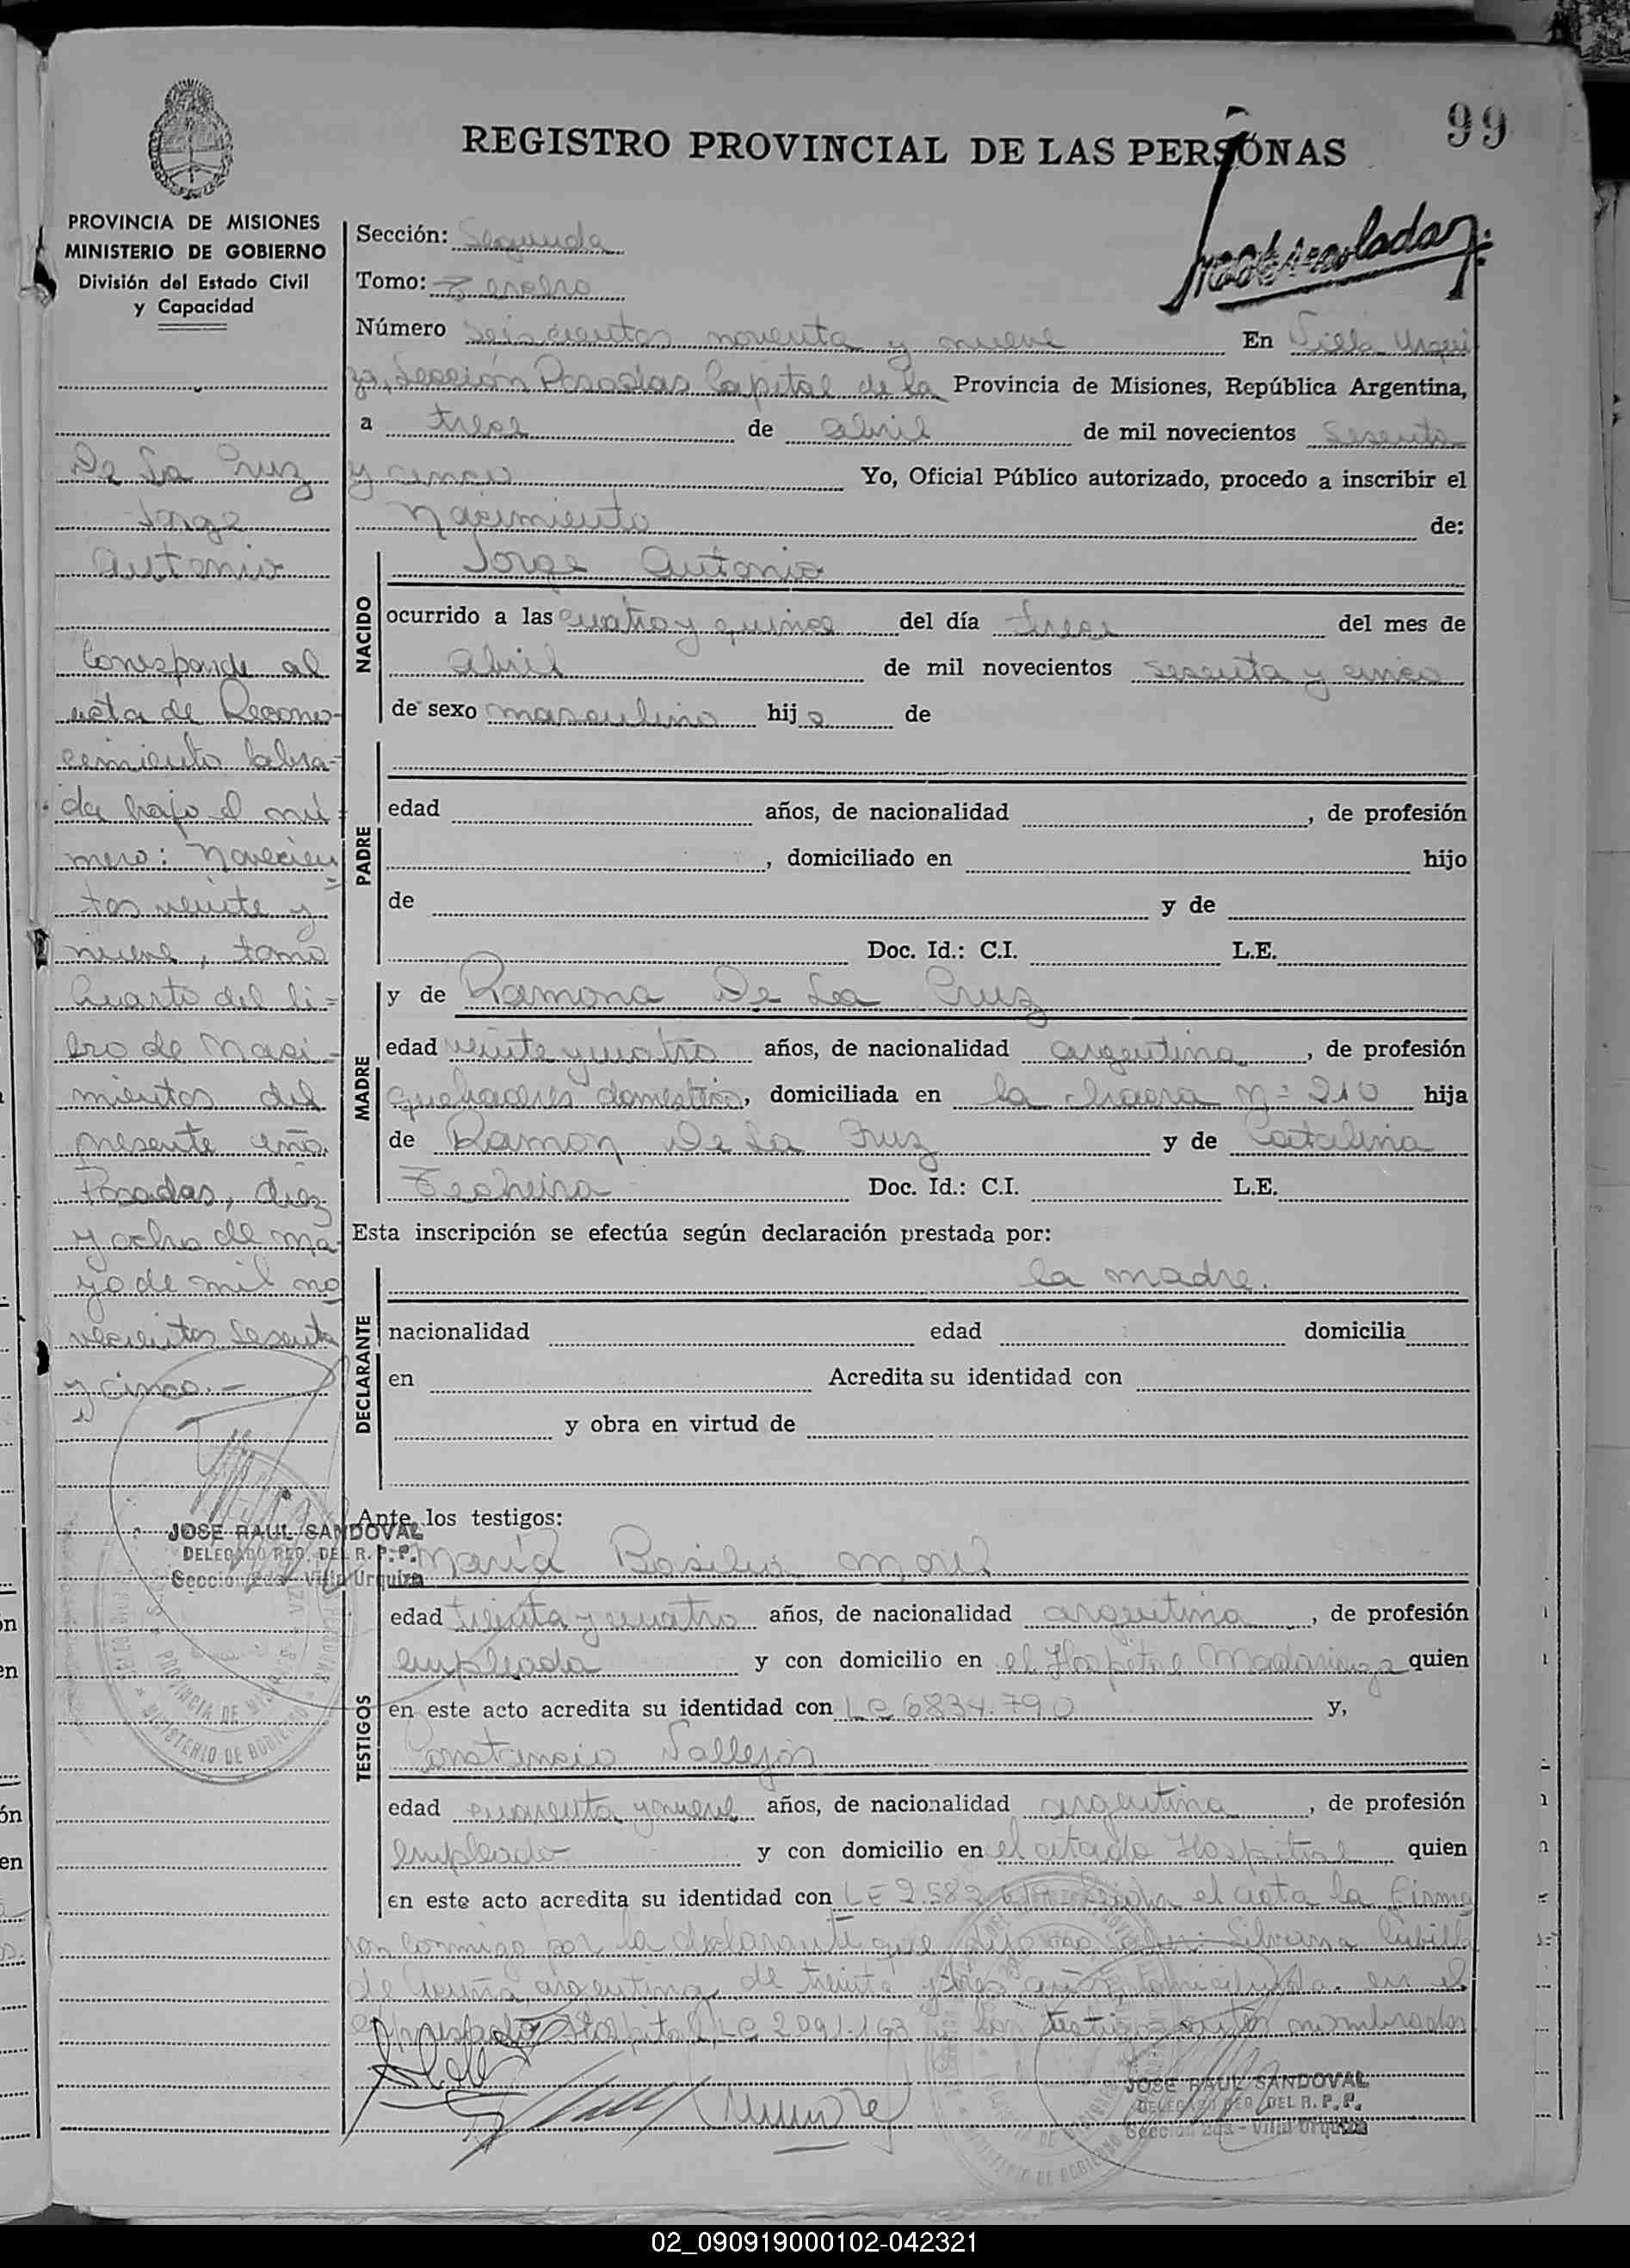 99
REGISTRO PROVINCIAL DE LAS PERSONAS
PROVINCIA DE MISIONES
MINISTERIO DE GOBIERNO
División del Estado Civil
y Capacidad
De La Cruz
Jorge
Antonio
Corresponde al
acta de Recono-
cimiento labra-
da bajo el nú-
mero: Novecien
tos veinte y
nueve, tomo
Cuarto del li-
bro de Naci-
mientos del
presente año.
Posadas, diez
y ocho de ma-
yo de mil no
vecientos sesenta
y cinco.-
JOSE RAUL SANDOVAL
DELEGADO REG. DEL R. P. P.
Sección 2da - Villa Urquiza
PROVINCIA DE MISIONES
MINISTERIO DE GOBIERNO
Sección: Segunda
Tomo: Tercero
Número seiscientos noventa y nueve En Villa Urqui
za, Sección Posadas Capital de la Provincia de Misiones, República Argentina,
a trece de abril de mil novecientos sesenta
y cinco Yo, Oficial Público autorizado, procedo a inscribir el
Nacimiento de:
NACIDO
Jorge Antonio
ocurrido a las cuatro y quince del día trece del mes de
abril de mil novecientos sesenta y cinco
de sexo masculino hijo de
PADRE
edad años, de nacionalidad , de profesión
, domiciliado en hijo
de y de
Doc. Id.: C.I. L.E.
MADRE
y de Ramona De La Cruz
edad veinte y cuatro años, de nacionalidad argentina, de profesión
quehaceres domésticos, domiciliada en la chacra Nº 210 hija
de Ramon De La Cruz y de Catalina
Techeira Doc. Id.: C.I. L.E.
Esta inscripción se efectúa según declaración prestada por:
DECLARANTE
la madre.
nacionalidad edad domicilia
en Acredita su identidad con
y obra en virtud de
Ante los testigos:
TESTIGOS
María Basilia
edad treinta y cuatro años, de nacionalidad argentina, de profesión
empleada y con domicilio en el Hospital Madariaga quien
en este acto acredita su identidad con LC 6834.790 y,
Constancio Vallejos
edad cuarenta y nueve años, de nacionalidad argentina, de profesión
empleado y con domicilio en el citado Hospital quien
en este acto acredita su identidad con LE 2.583 el acta la firma
ron conmigo por la declarante que dijo no saber: Silvana
de argentina, de treinta y tres años, domiciliada en el
Hospital, LC 2091.163 y los testigos antes nombrados
JOSE RAUL SANDOVAL
DELEGADO REG. DEL R. P. P.
Sección 2da - Villa Urquiza
02_090919000102-042321